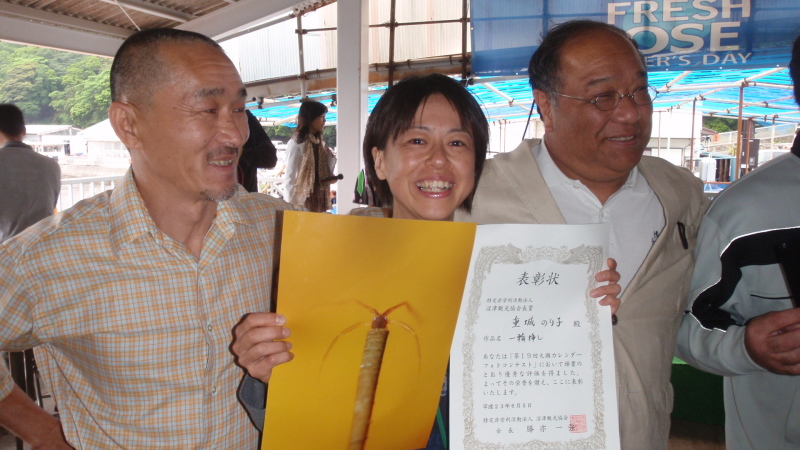 FRESH
OSE
ER'S DAY
表彰状
特定非営利活動法人
沼津観光協会長賞
重城 のり子 殿
作品名
一輪挿し
あなたは「第19回大瀬カレンダー
フォトコンテスト」において頭書の
とおり優秀な評価を得ました。
よってその栄誉を讃え、ここに表彰
いたします。
平成23年6月5日
特定非営利活動法人 沼津観光協会
会長 勝亦一